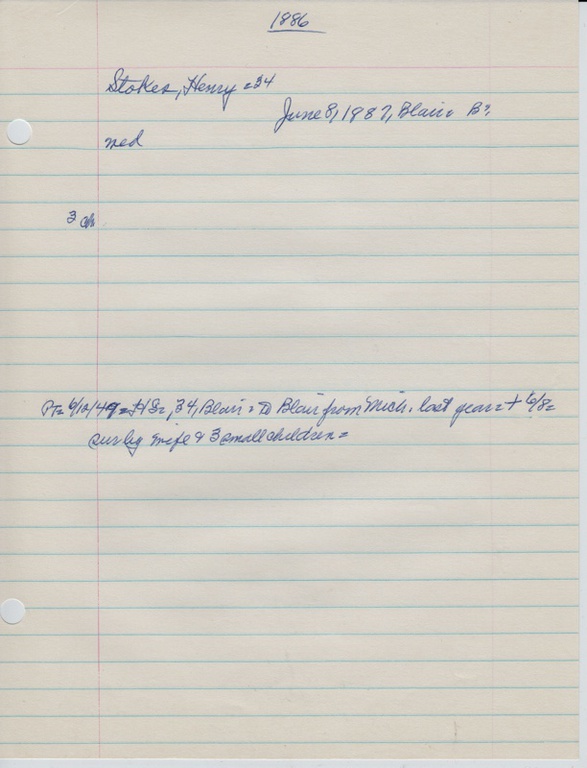 1886
Stokes, Henry = 34
June 8, 1887, Blair B?
med
3 ch
PT= 6/12/ = H S=, 34, Blair = to Blair from Mich. last year = + 6/8 =
sur by wife & 3 small children =